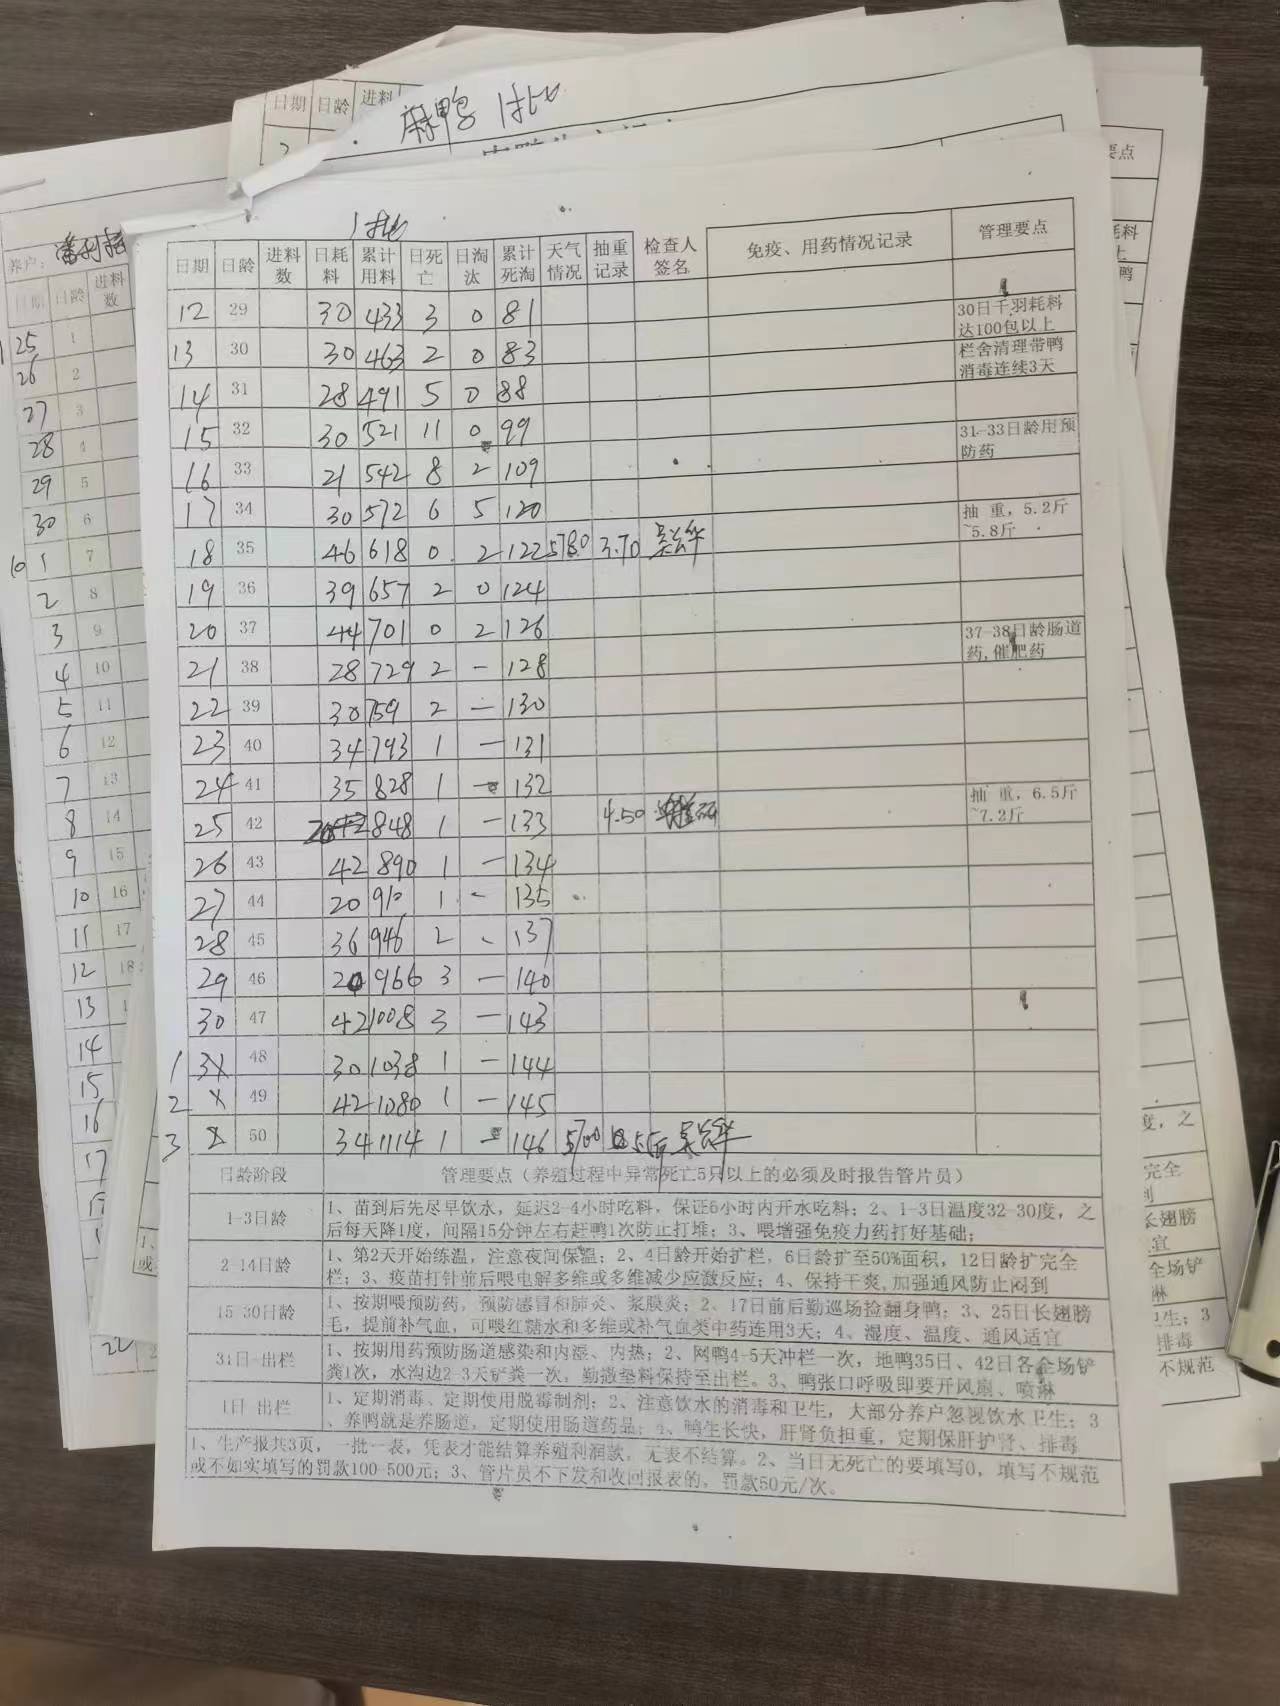 日期 日龄 进料
麻鸭 1批
要点
养户:
日期 日龄 进料数
25 1
26 2
27 3
28 4
29 5
30 6
10 1 7
2 8
3 9
4 10
5 11
6 12
7 13
8 14
9 15
10 16
11 17
12 18
13
14
15
16
17
22
1批
日期 日龄 进料数 日耗料 累计用料 日死亡 日淘汰 累计死淘 天气情况 抽重记录 检查人签名 免疫、用药情况记录 管理要点
12 29 30 433 3 0 81
30日千羽耗料
达100包以上
13 30 30 463 2 0 83
栏舍清理带鸭
消毒连续3天
14 31 28 491 5 0 88
15 32 30 521 11 0 99
31-33日龄用预
防药
16 33 21 542 8 2 109
17 34 30 572 6 5 120
抽 重，5.2斤
~5.8斤
18 35 46 618 0 2 122 5780 3.70
19 36 39 657 2 0 124
20 37 44 701 0 2 126
37-38日龄肠道
药,催肥药
21 38 28 729 2 - 128
22 39 30 759 2 - 130
23 40 34 793 1 - 131
24 41 35 828 1 - 132
抽 重，6.5斤
~7.2斤
25 42 848 1 - 133 4.50
26 43 42 890 1 - 134
27 44 20 910 1 - 135
28 45 36 946 2 - 137
29 46 20 966 3 - 140
30 47 42 1008 3 - 143
1 48 30 1038 1 - 144
2 49 42 1080 1 - 145
3 50 34 1114 1 - 146 5700
日龄阶段 管理要点（养殖过程中异常死亡5只以上的必须及时报告管片员）
1-3日龄
1、苗到后先尽早饮水，延迟2-4小时吃料，保证6小时内开水吃料；2、1-3日温度32-30度，之
后每天降1度，间隔15分钟左右赶鸭1次防止打堆；3、喂增强免疫力药打好基础；
2-14日龄
1、第2天开始练温，注意夜间保温；2、4日龄开始扩栏，6日龄扩至50%面积，12日龄扩完全
栏；3、疫苗打针前后喂电解多维或多维减少应激反应；4、保持干爽,加强通风防止闷到
15-30日龄
1、按期喂预防药，预防感冒和肺炎、浆膜炎；2、17日前后勤巡场捡翻身鸭；3、25日长翅膀
毛，提前补气血，可喂红糖水和多维或补气血类中药连用3天；4、湿度、温度、通风适宜
31日-出栏
1、按期用药预防肠道感染和内湿、内热；2、网鸭4-5天冲栏一次，地鸭35日、42日各全场铲
粪1次，水沟边2-3天铲粪一次，勤撒垫料保持至出栏。3、鸭张口呼吸即要开风扇、喷淋
1日-出栏
1、定期消毒、定期使用脱霉制剂；2、注意饮水的消毒和卫生，大部分养户忽视饮水卫生；3
、养鸭就是养肠道，定期使用肠道药品；4、鸭生长快，肝肾负担重，定期保肝护肾、排毒
1、生产报共3页，一批一表，凭表才能结算养殖利润款，无表不结算。2、当日无死亡的要填写0，填写不规范
或不如实填写的罚款100-500元；3、管片员不下发和收回报表的，罚款50元/次。